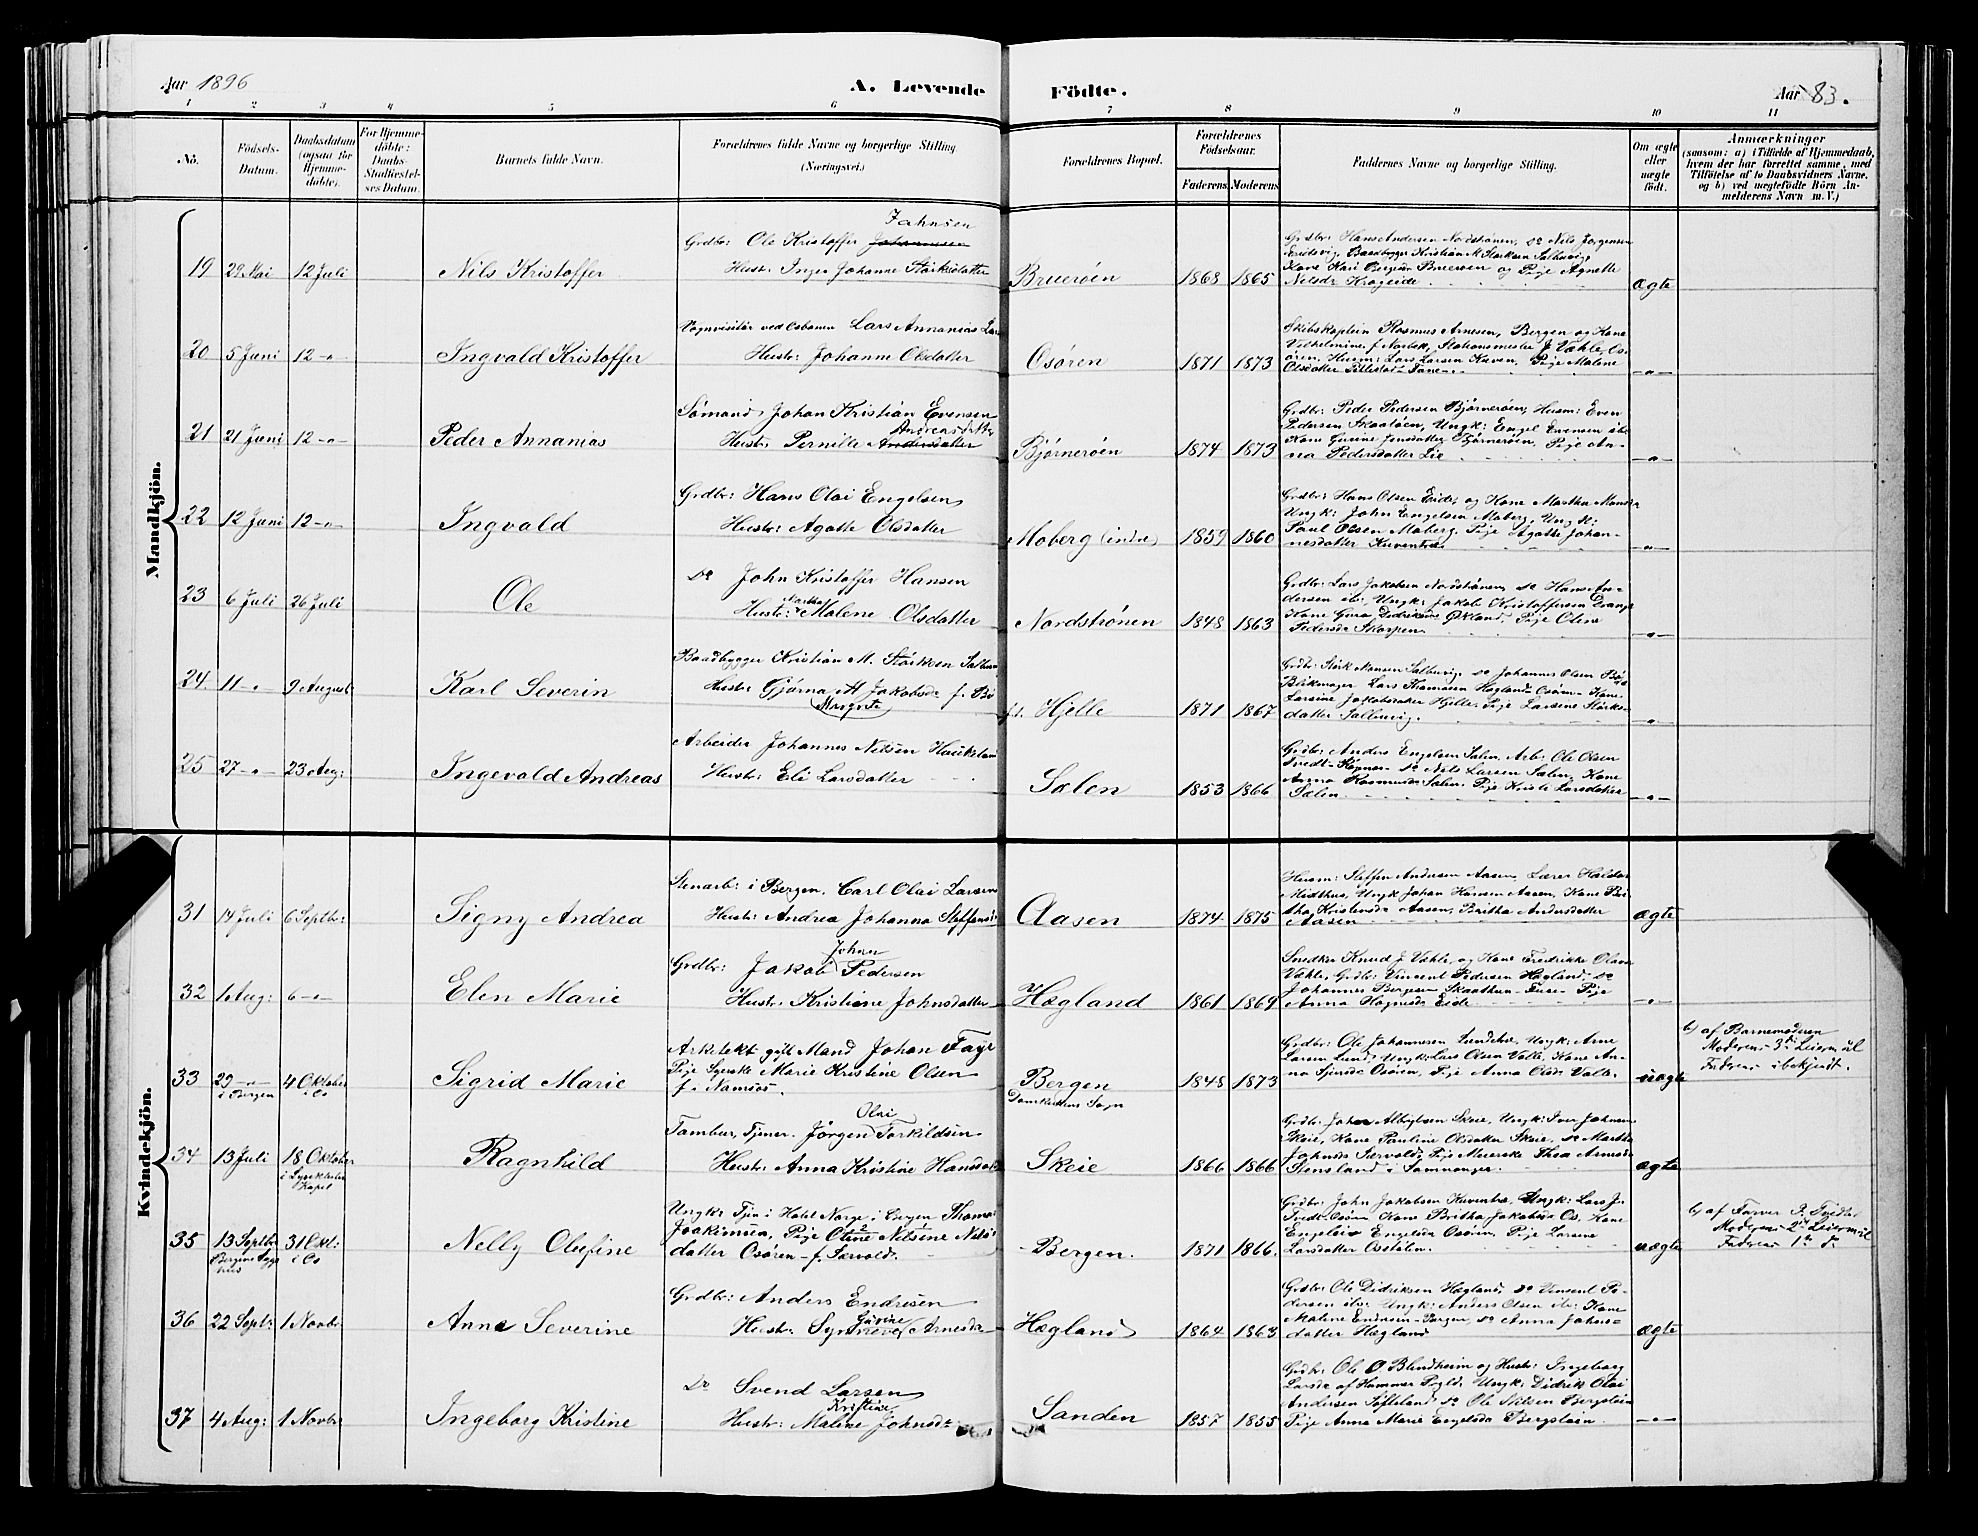 Aar 1896
A. Levende Födte.
Aar 83.
1 2 3 4 5 6 7 8 9 10 11
No.
Födsels-Datum.
Daabsdatum (ogsaa for Hjemmedöbte).
For Hjemmedöbte: Daabs-Stadfæstelses Datum.
Barnets fulde Navn.
Forældrenes fulde Navne og borgerlige Stilling (Næringsvei.)
Forældrenes Bopæl.
Forældrenes Födselsaar.
Faderens Moderens
Faddernes Navne og borgerlige Stilling.
Om ægte eller uægte födt.
Anmærkninger
(saasom: a) i Tilfælde af Hjemmedaab, hvem der har forrettet samme, med Tilföielse af to Daabsvidners Navne, og b) ved uægtefödte Börn Anmelderens Navn m. V.)
Mandkjön.
19 29 Mai 12 Juli
Nils Kristoffer
Jahnsen
Grdbr: Ole Kristoffer Johannesen
Hustr: Inger Johanne Størksdatter
Bruerøen 1868 1865
Grdbr: Hans Andersen Nordstrønen, Do Nils Jørgensen
Kone Kari Bruerøen og Pige Agnette
Nilsdr Krogeide
ægte
20 5 Juni 12 -"-
Ingvald Kristoffer
Vognvisitør ved Osbanen Lars Annanias
Hustr: Johanne Olsdatter
Osøren 1871 1873
Skibskaptein Rasmus Arnesen, Bergen og Kone
Vilhelmine f. Norbek, Stationsmester J. Vahle, Osøren, Husm: Lars Larsen Kuven, Pige Malene
Olsdatter
-"-
21 21 Juni 12 -"-
Peder Annanias
Sømand Johan Kristian Evensen
Andreasdatter
Hustr: Pernille Andersdatter
Bjørnerøen 1874 1873
Grdbr: Peder Pedersen Bjørnerøen, Husm: Even
Pedersen Skaatøen, Ungk: Engel Evensen ibd
Kone Gurine Jensdatter Bjørnerøen, Pige Anna Pedersdatter Lie
-"-
22 12 Juni 12 -"-
Ingvald
Grdbr: Hans Olai Engelsen
Hustr: Agatte Olsdatter
Moberg (indre) 1859 1860
Grdbr: Hans Olsen Eide, og Kone Martha Monsdr
Ungk: John Engelsen Moberg, Ungk:
Paul Olsen Moberg, Pige Agatte Johannesdatter Kuventræ
-"-
23 6 Juli 26 Juli
Ole
Do John Kristoffer Hansen
Martha
Hustr: Malene Olsdatter
Nordstrønen 1848 1863
Grdbr: Lars Jakobsen Nordstrønen, Do Hans Andersen ibd, Ungk: Jakob Kristoffersen Drange
Kone Guro Didriksdr Økland, Pige Oline
Pedersdr Skorpen
-"-
24. 11 -"- 9 August
Karl Severin
Baadbygger Kristian M. Størksen
Hustr: Gjørna M Jakobsdr f. Bø
Margrete
Hjelle 1871 1867
Grdbr: Størk Monsen Salbuvig, Do Johannes Olsen Bø
Blikmager Lars Thomasen Hegland Osøren Kone
Larsine Jakobsdatter Hjelle, Pige Larsine Størksdatter Salbuvig.
-"-
25 27 -"- 23 Aug:
Ingevald Andreas
Arbeider Johannes Nilsen Haukeland
Hustr: Eli Larsdatter
Sælen 1853 1866
Grdbr: Anders Engelsen Sælen, Arb: Ole Olsen
Do Nils Larsen Sælen, Kone
Anna Rasmusdr Sælen, Pige Kristi Larsdatter
Sælen
-"-
Kvindekjön.
31 14 Juli 6 Septbr:
Signy Andrea
Stenarb: i Bergen, Carl Olai Larsen
Hustr: Andrea Johanna Steffensdr
Aasen 1874 1875
Husm: Steffen Andersen Aasen, Lærer Haldor
Midthus, Ungk Johan Hansen Aasen, Kone Britha Kristensdr Aasen, Britha Andersdatter
Aasen
ægte
32 1 Aug: 6 -"-
Elen Marie
Johan
Grdbr: Jakob Pedersen
Hustr: Kristiane Johnsdatter
Hægland 1861 1869
Snedker Knud J Vahle, og Kone Fredrikke Olava
Vahle, Grdbr: Vincent Pedersen Hægland, Do
Johannes Børgesen Skaathun Fuse Pige
Anna Magnusdr Eide
-"-
33 29 -"- i Bergen 4 Oktober i Os
Sigrid Marie
Arkitekt gift Mand Johan Faye
Pige Syerske Marie Kristine Olsen
f. Namsos.
Bergen
Domkirkens Sogn
1848 1873
Grdbr: Ole Johannesen Lundetræ, Ungk: Arne
Larsen Lund, Ungk: Lars Olsen Valle, Kone Anna Osøren, Pige Anna Olsdr Valle.
uægte
b) af Barnemoderen
Moderens 3die Leiermaal
Faderens ubekjendt.
34 13 Juli 18 Oktober i Lyseklosters Kapel
Ragnhild
Olai
Tambur, Tjener. Jørgen Torkildsen
Hustr: Anna Kristine Hansdatter
Skeie 1866 1866
Grdbr: Johan Albrigtsen Skeie, Ungk: Iver Johnsen
Skeie, Kone Pauline Olsdatter Skeie, Do Martha
Johnsdr Særvold, Pige Meierske Thea Arnesdr
Stensland i Samnanger.
ægte
35 13 Septbr Bergens 31 Okt: i Os
Nelly Olufine
Ungk: Tjen i Hotel Norge i Bergen Thomas
Joakimsen, Pige Oline Nilsine Nilsdatter Osøren f. Særvold.
Bergen. 1871 1866.
Grdbr: John Jakobsen Kuventræ, Ungk: Lars J.
Tvedt Osøren Kone Britha Jakobsdr Os, Kone
Engelsdatter Osøren, Pige Larsine
Larsdatter
uægte
b) af Farver P. Tvedter
Moderens 2det Leiermaal
Faderens 1ste Do
36 22 Septr: 1 Novbr
Anna Severine
Grdbr: Anders Endresen
Gurine
Hustr: Synneve Arnesdr
Hægland 1864 1863
Grdbr: Ole Didriksen Hægland, Do Vincent Pedersen ibd: Ungk: Anders Olsen ibd: Kone
Malene Endresen Bergen, Do Anna Johnsdatter Hægland
ægte
37 4 Aug: 1 Novbr
Ingeborg Kristine
Do Svend Larsen
Kristine
Hustr: Malene Johnsdr
Sanden 1857 1855
Grdbr: Ole O. Blendheim og Hustr: Ingeborg
Larsdr af Hammer Pgld: Ungk: Didrik Olai
Andersen Søfteland Do Ole Nilsen Bergstøen
Pige Anna Marie Engelsdr Bergstøen
-"-